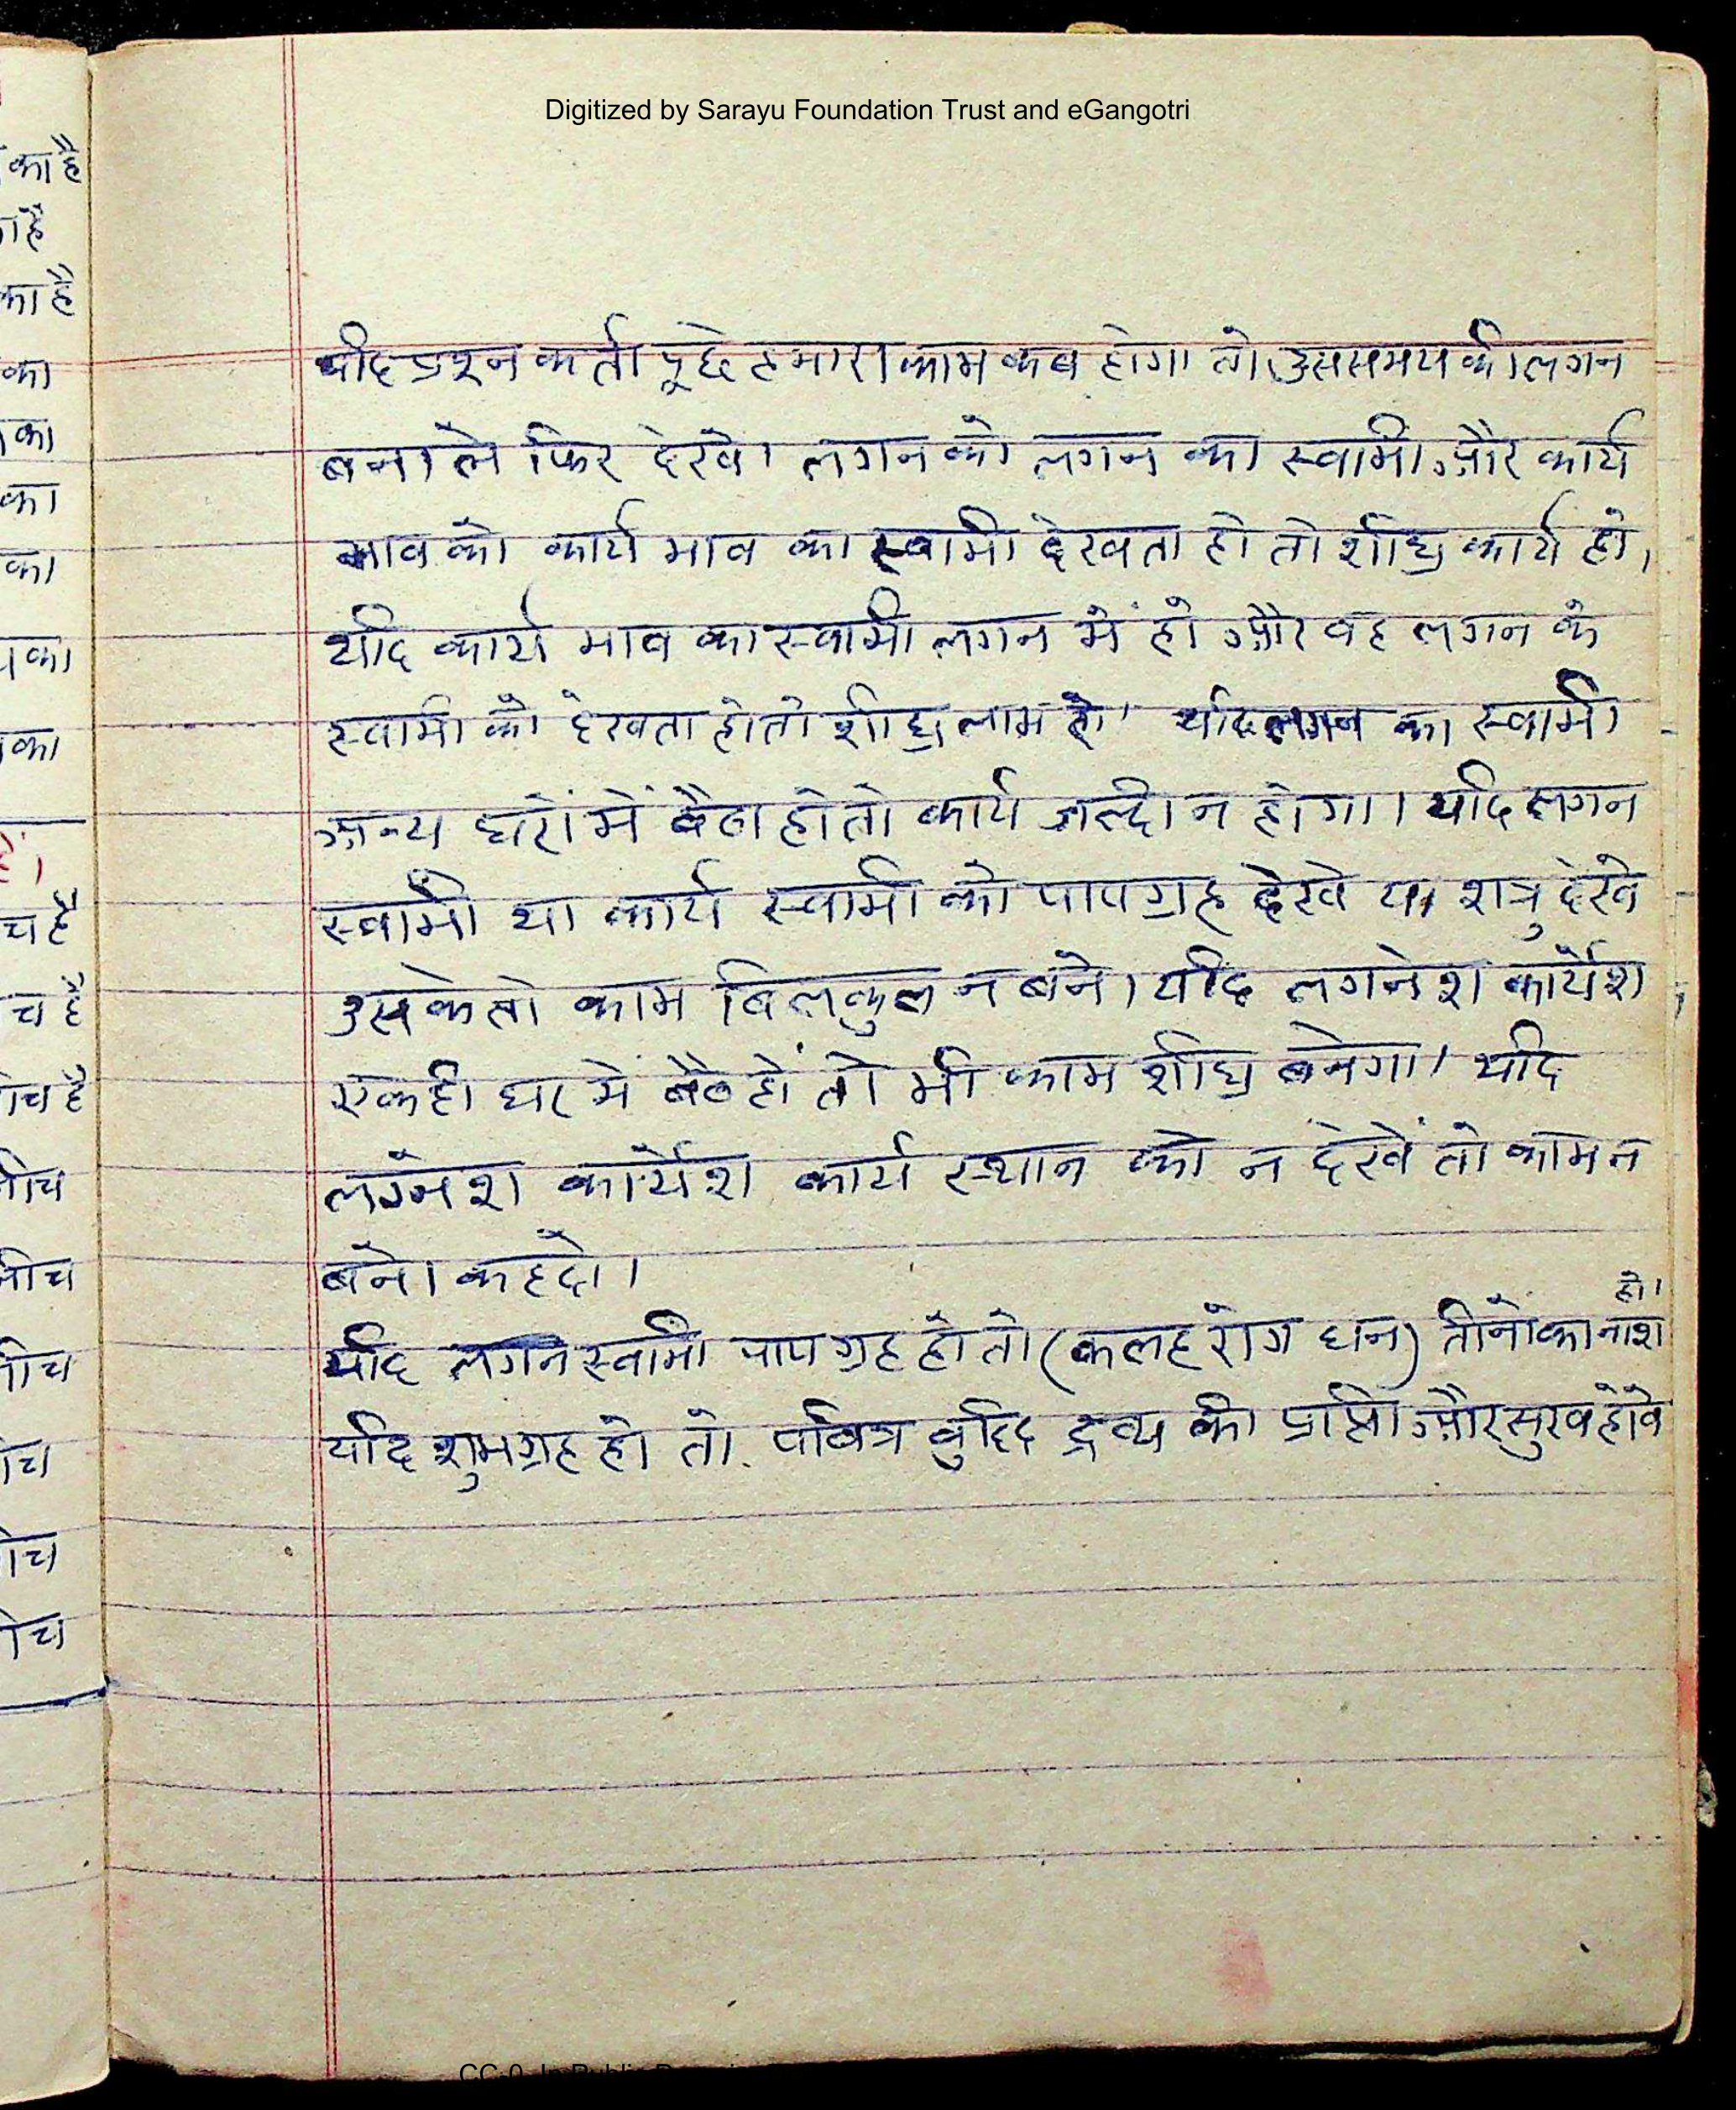 Digitized by Sarayu Foundation Trust and eGangotri
यदि प्रश्न कर्ता पूछे हमारा काम कब होगा तो उस समय की लगन
बना ले फिर देखे। लगन को लगन का स्वामी और कार्य
भाव को कार्य भाव का स्वामी देखता हो तो शीघ्र कार्य हो,
यदि कार्य भाव का स्वामी लगन में हो और वह लगन के
स्वामी को देखता हो तो शीघ्र लाभ हो। यदि लगन का स्वामी
अन्य घरों में बैठा हो तो कार्य जल्दी न होगा। यदि लगन
स्वामी या कार्य स्वामी को पापग्रह देखे या शत्रु देखे
उसके तो काम बिलकुल न बने। यदि लगनेश कार्येश
एक ही घर में बैठे हों तो भी काम शीघ्र बनेगा। यदि
लग्नेश कार्येश कार्य स्थान को न देखें तो काम न
बने। कहदो।
यदि लगन स्वामी पाप ग्रह हो तो (कलह रोग धन) तीनो का नाश हो।
यदि शुभग्रह हो तो. पवित्र बुद्धि द्रव्य की प्राप्ती और सुख होवे
का है
का है
का है
का
का
का
का
का
का
है।
च है
च है
ीच है
ीच
ीच
ीच
ीच
ीच
ीच
CC-0. In Public